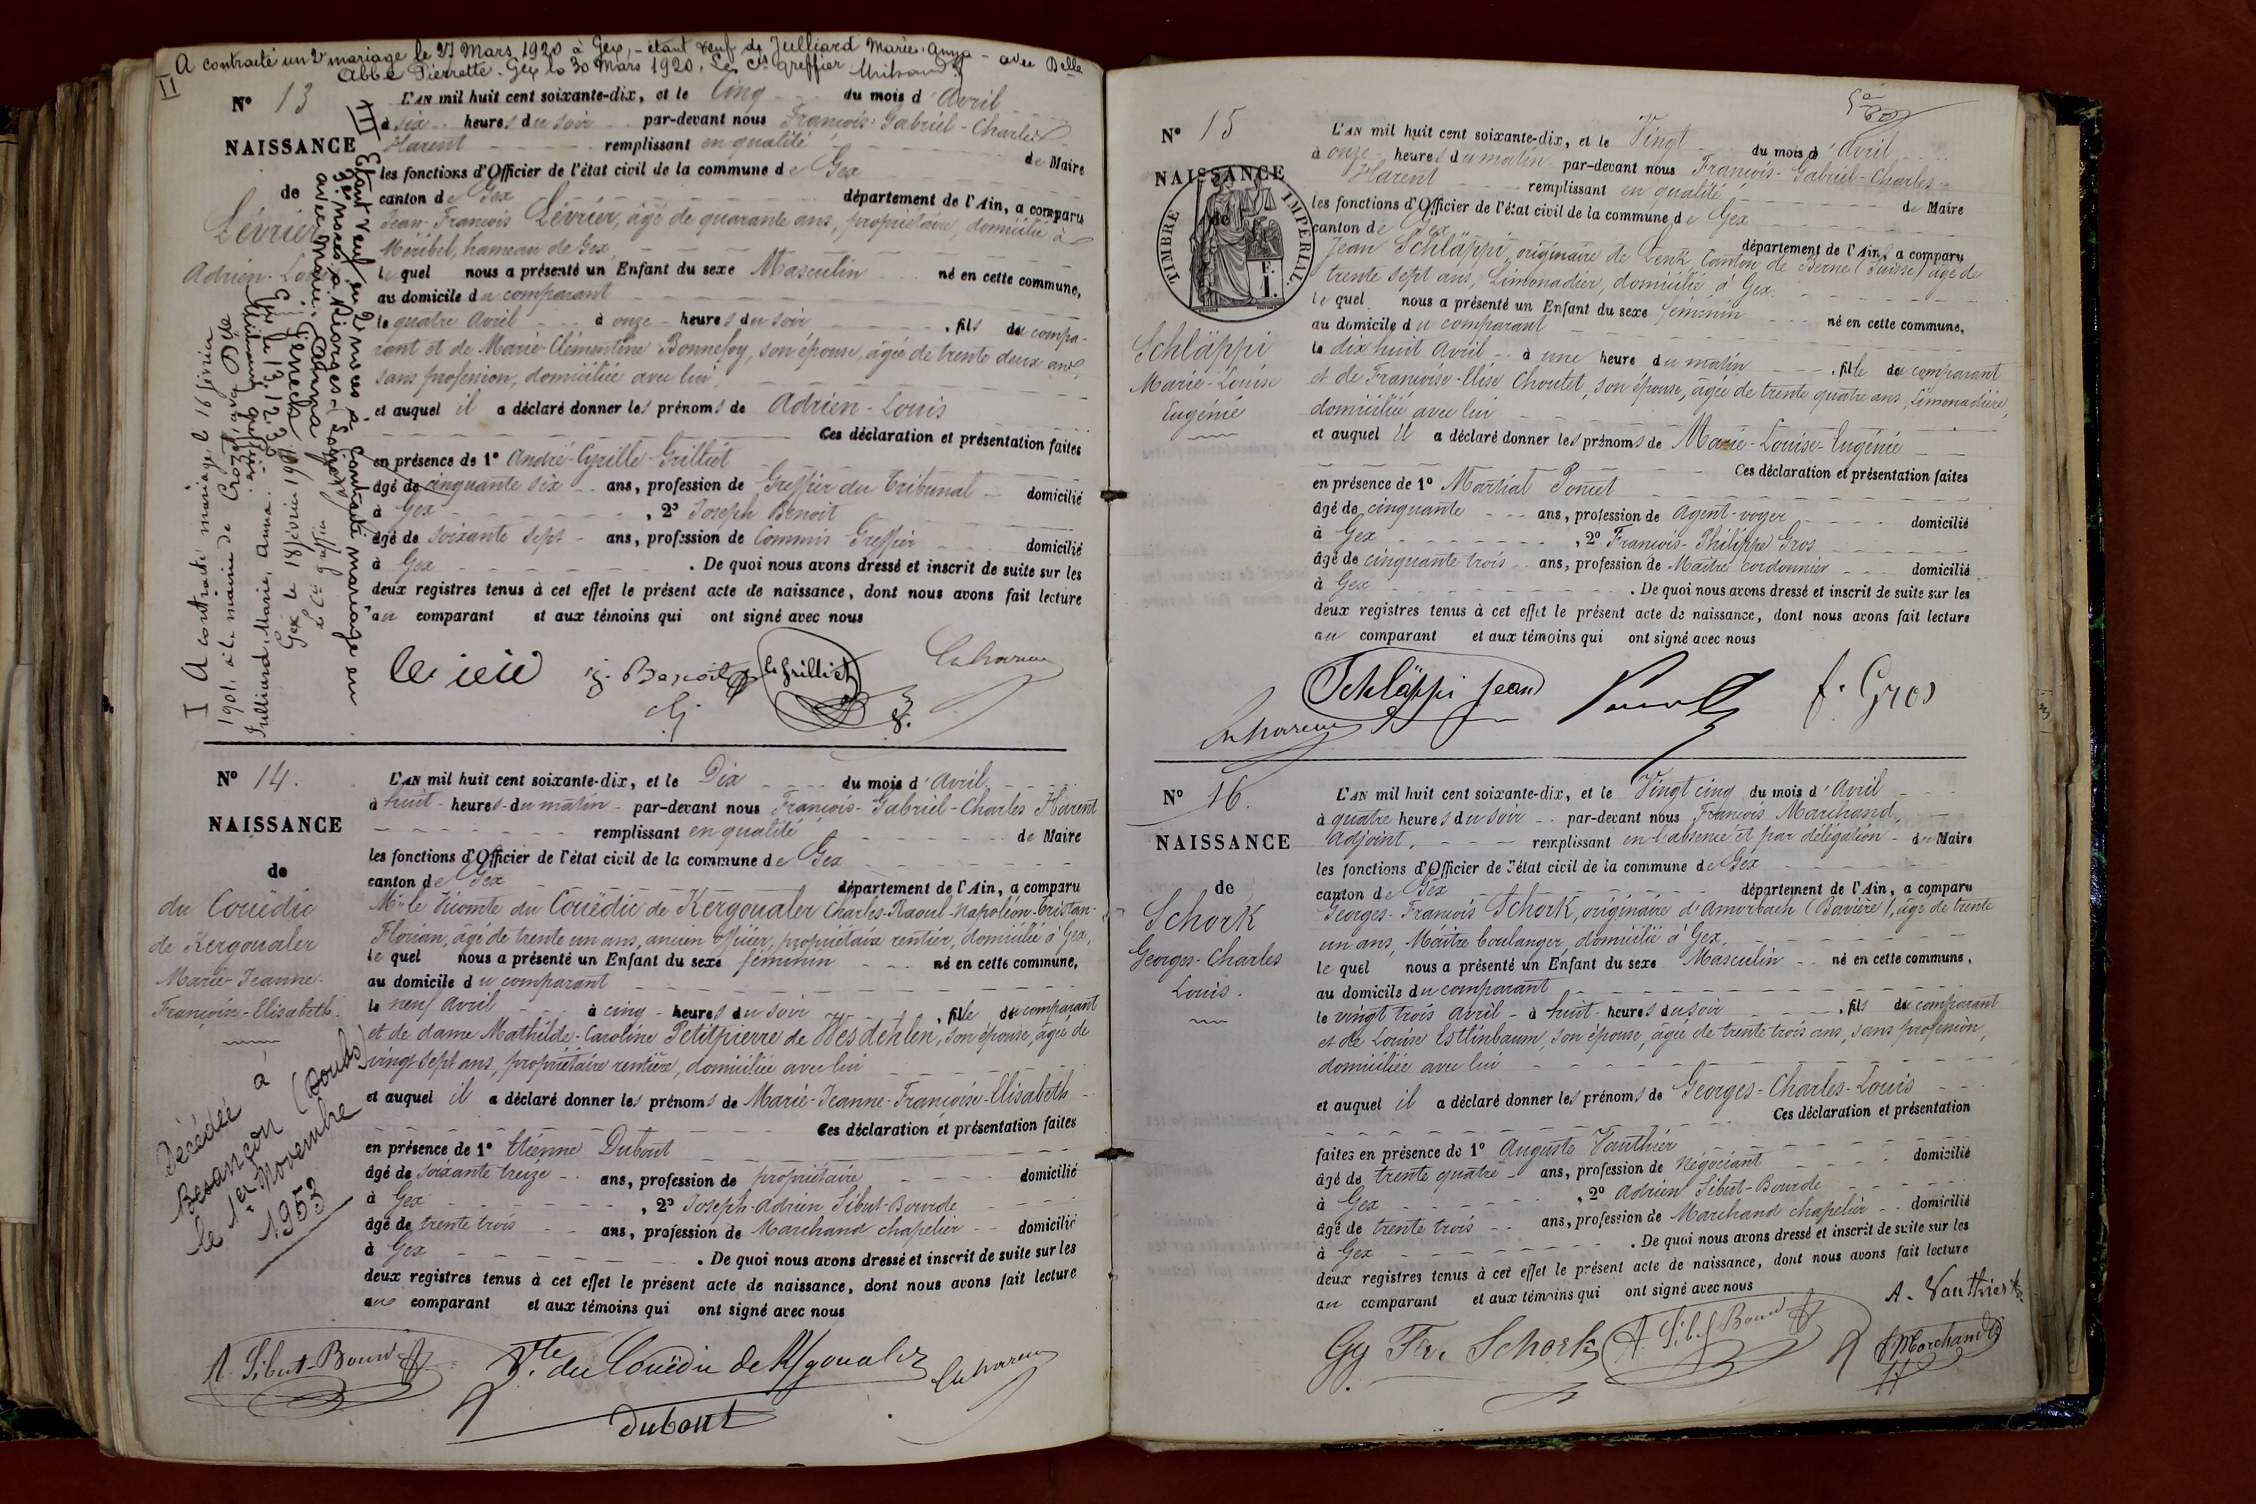 A contracté un 2e mariage le 27 Mars 1920 à Gex, - étant veuf de Julliard Marie-Anna - avec Delle
Abbe Pierrette. Gex le 30 Mars 1920. Le cis greffier
II
N° 13
NAISSANCE
de
Lévrier
Adrien-Louis
L'AN mil huit cent soixante-dix, et le Cinq du mois d'Avril
à six heures du soir par-devant nous François-Gabriel-Charles
Harent remplissant en qualité de Maire
les fonctions d'Officier de l'état civil de la commune de Gex
canton de Gex département de l'Ain, a comparu
Jean-François Lévrier, âgé de quarante ans, propriétaire, domicilié à
Méribel, hameau de Gex,
lequel nous a présenté un Enfant du sexe Masculin né en cette commune,
au domicile du comparant
le quatre Avril à onze heures du soir, fils du compa-
rant et de Marie-Clémentine Bonnefoy, son épouse, âgée de trente deux ans,
sans profession, domiciliée avec lui
et auquel il a déclaré donner les prénoms de Adrien-Louis
Ces déclaration et présentation faites
en présence de 1° André-Cyrille Grilliet
âgé de cinquante six ans, profession de Greffier du Tribunal domicilié
à Gex, 2° Joseph Benoit
âgé de soixante sept ans, profession de Commis Greffier domicilié
à Gex. De quoi nous avons dressé et inscrit de suite sur les
deux registres tenus à cet effet le présent acte de naissance, dont nous avons fait lecture
au comparant et aux témoins qui ont signé avec nous
j. Benoit Grilliet
I A contracté mariage le 16 février
1901, à la mairie de Crozet, avec Dlle
Julliard, Marie, Anna.
Gex le 18 février 1901
Le Cis greffier
III Étant veuf en 2 noces a contracté mariage en
avec Marie
N° 14.
NAISSANCE
de
du Couëdic
de Kergoualer
Marie-Jeanne-
Françoise-Elisabeth.
Décédée à
Besançon (Doubs)
le 1er Novembre
1953
L'AN mil huit cent soixante-dix, et le Dix du mois d'Avril
à huit heures du matin par-devant nous François-Gabriel-Charles Harent
remplissant en qualité de Maire
les fonctions d'Officier de l'état civil de la commune de Gex
canton de Gex département de l'Ain, a comparu
Mr le Vicomte du Couëdic de Kergoualer Charles-Raoul-Napoléon-Tristan-
Florian, âgé de trente un ans, ancien officier, propriétaire rentier, domicilié à Gex,
lequel nous a présenté un Enfant du sexe féminin né en cette commune,
au domicile du comparant
le neuf Avril à cinq heures du soir, fille du comparant
et de dame Mathilde-Caroline Petitpierre de Wesdehlen, son épouse, âgée de
vingt sept ans, propriétaire rentière, domiciliée avec lui
et auquel il a déclaré donner les prénoms de Marie-Jeanne-Françoise-Elisabeth
Ces déclaration et présentation faites
en présence de 1° Etienne Dubout
âgé de soixante treize ans, profession de propriétaire domicilié
à Gex, 2° Joseph-Adrien Sibut-Bourde
âgé de trente trois ans, profession de Marchand chapelier domicilié
à Gex. De quoi nous avons dressé et inscrit de suite sur les
deux registres tenus à cet effet le présent acte de naissance, dont nous avons fait lecture
au comparant et aux témoins qui ont signé avec nous
A. Sibut-Bourde Vte du Couëdic de Kgoualer
Dubout
N° 15
NAISSANCE
de
TIMBRE IMPERIAL.
Schläppi
Marie-Louise
Eugénie
L'AN mil huit cent soixante-dix, et le Vingt du mois d'Avril
à onze heures du matin par-devant nous François-Gabriel-Charles-
Harent remplissant en qualité de Maire
les fonctions d'Officier de l'état civil de la commune de Gex
canton de Gex département de l'Ain, a comparu
Jean Schläppi, originaire de Lenk, Canton de Berne (Suisse) âgé de
trente sept ans, Limonadier, domicilié à Gex,
lequel nous a présenté un Enfant du sexe féminin né en cette commune,
au domicile du comparant
le dix huit Avril à une heure du matin, fille du comparant
et de Françoise-Elise Choutet, son épouse, âgée de trente quatre ans, Limonadière,
domiciliée avec lui
et auquel il a déclaré donner les prénoms de Marie-Louise-Eugénie
Ces déclaration et présentation faites
en présence de 1° Martial Poncet
âgé de cinquante ans, profession de Agent-voyer domicilié
à Gex, 2° François-Philippe Gros
âgé de cinquante trois ans, profession de Maître cordonnier domicilié
à Gex. De quoi nous avons dressé et inscrit de suite sur les
deux registres tenus à cet effet le présent acte de naissance, dont nous avons fait lecture
au comparant et aux témoins qui ont signé avec nous
Schläppi Jean f. Gros
N° 16.
NAISSANCE
de
Schork
Georges-Charles
Louis.
L'AN mil huit cent soixante-dix, et le Vingt cinq du mois d'Avril
à quatre heures du soir par-devant nous François Marchand,
Adjoint, remplissant en l'absence et par délégation du Maire
les fonctions d'Officier de l'état civil de la commune de Gex
canton de Gex département de l'Ain, a comparu
Georges-François Schork, originaire d'Amorbach (Bavière), âgé de trente
un ans, Maître boulanger, domicilié à Gex,
lequel nous a présenté un Enfant du sexe Masculin né en cette commune,
au domicile du comparant
le vingt trois avril à huit heures du soir, fils du comparant
et de Louise Estlinbaum, son épouse, âgée de trente trois ans, sans profession,
domiciliée avec lui
et auquel il a déclaré donner les prénoms de Georges-Charles-Louis
Ces déclaration et présentation
faites en présence de 1° Auguste Vauthier
âgé de trente quatre ans, profession de Négociant domicilié
à Gex, 2° Adrien Sibut-Bourde
âgé de trente trois ans, profession de Marchand chapelier domicilié
à Gex. De quoi nous avons dressé et inscrit de suite sur les
deux registres tenus à cet effet le présent acte de naissance, dont nous avons fait lecture
au comparant et aux témoins qui ont signé avec nous
A. Vauthier
Gg Fr. Schork A. Sibut Bourde f. Marchand